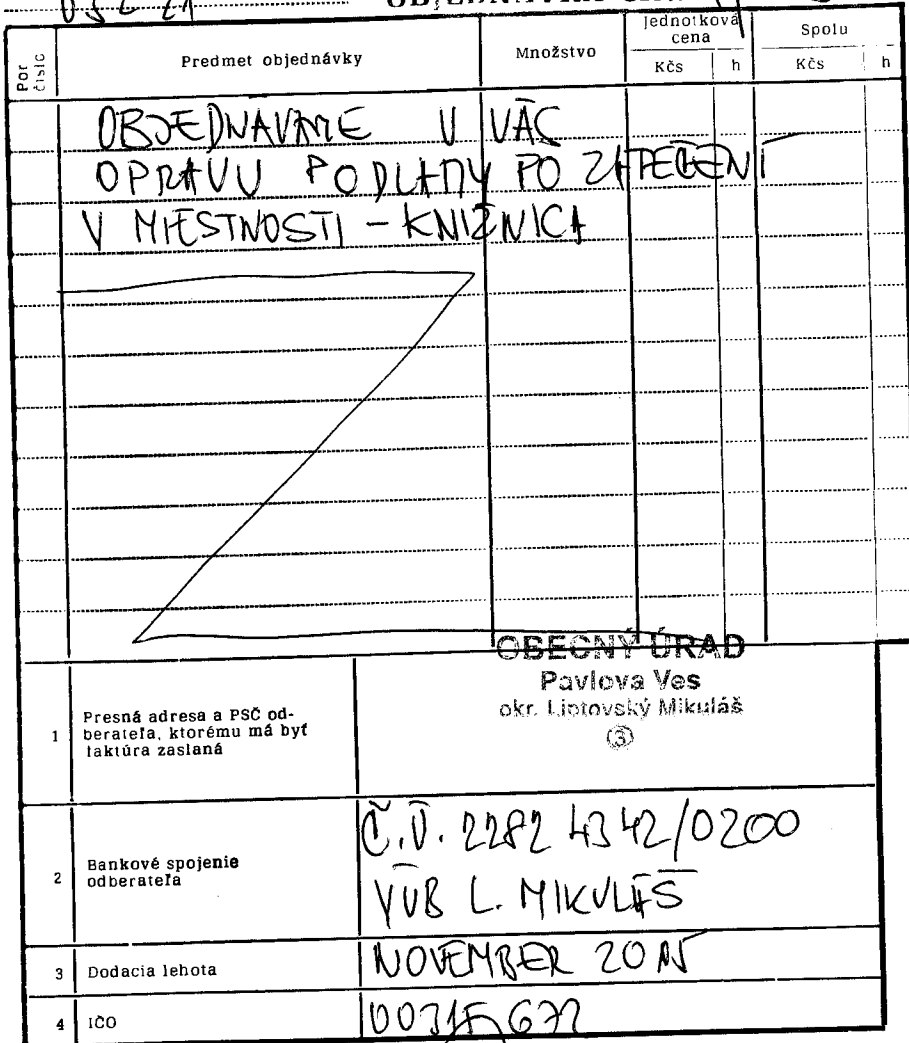 Por čislo
Predmet objednávky
Množstvo
Jednotková cena
Spolu
Kčs h
Kčs h
OBJEDNÁVAME U VÁS
OPRAVU PODLAHY PO ZATEČENÍ
V MIESTNOSTI - KNIŽNICA
OBECNÝ ÚRAD
Pavlova Ves
okr. Liptovský Mikuláš
3
1 Presná adresa a PSČ od-
berateľa, ktorému má byť
faktúra zaslaná
2 Bankové spojenie
odberateľa
Č.Ú. 2282 4342/0200
VÚB L. MIKULÁŠ
3 Dodacia lehota
NOVEMBER 2015
4 IČO